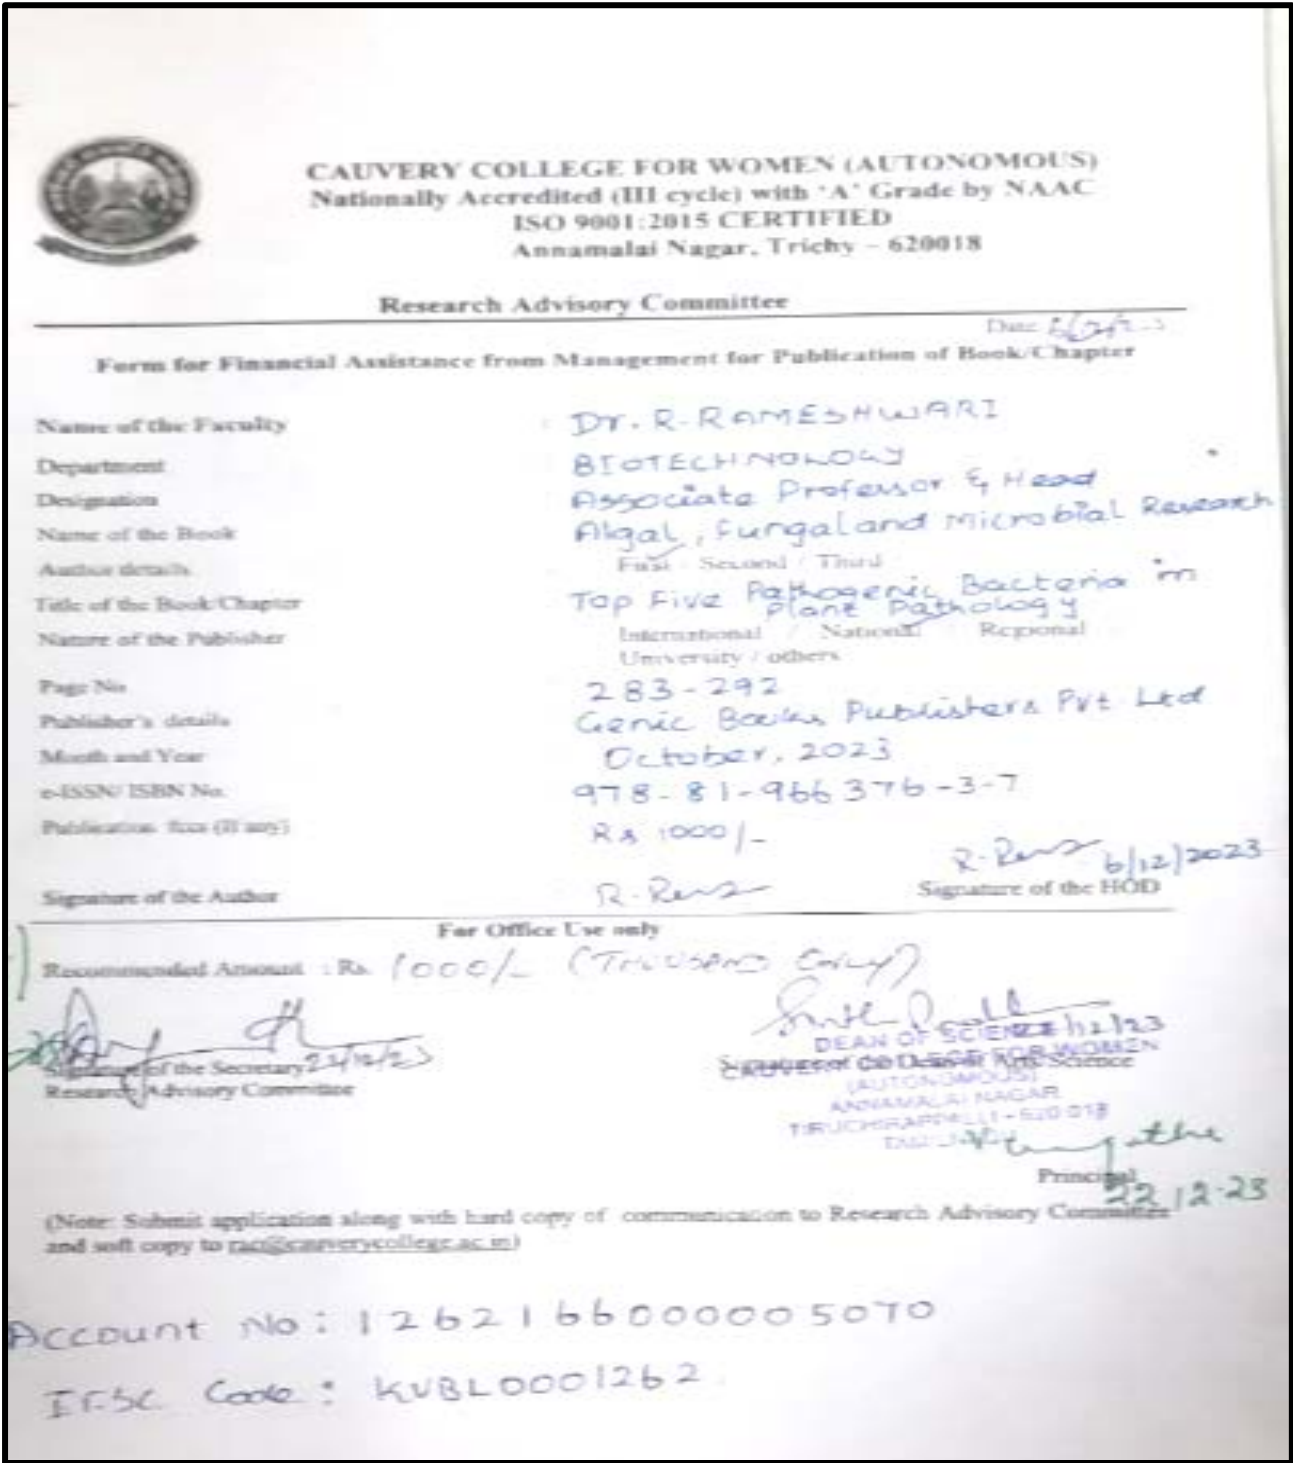 CAUVERY COLLEGE FOR WOMEN (AUTONOMOUS)
Nationally Accredited (III cycle) with 'A' Grade by NAAC
ISO 9001:2015 CERTIFIED
Annamalai Nagar, Trichy – 620018
Research Advisory Committee
Date
Form for Financial Assistance from Management for Publication of Book/Chapter
Name of the Faculty : Dr. R. RAMESHWARI
Department BIOTECHNOLOGY
Designation Associate Professor & Head
Name of the Book Algal, Fungal and Microbial Research
Author details First / Second / Third
Title of the Book/Chapter Top Five Pathogenic Bacteria in
Plant Pathology
Nature of the Publisher International / National / Regional
University / others
Page No 283-292
Publisher's details Genic Books Publishers Pvt Ltd
Month and Year October, 2023
e-ISSN/ ISBN No. 978-81-966376-3-7
Publication fees (If any) Rs 1000/-
6/12/2023
Signature of the Author Signature of the HOD
For Office Use only
Recommended Amount : Rs. 1000/- (THOUSAND ONLY)
DEAN OF SCIENCE 22/12/23
Signature of the Secretary 22/12/23 Signature of the Dean of Arts/Science
CAUVERY COLLEGE FOR WOMEN
Research Advisory Committee (AUTONOMOUS)
ANNAMALAI NAGAR
TIRUCHIRAPPALLI - 620 018
Principal
22 12-23
(Note: Submit application along with hard copy of communication to Research Advisory Committee
and soft copy to rac@cauverycollege.ac.in)
Account No: 1262166000005070
IFSC Code: KVBL0001262